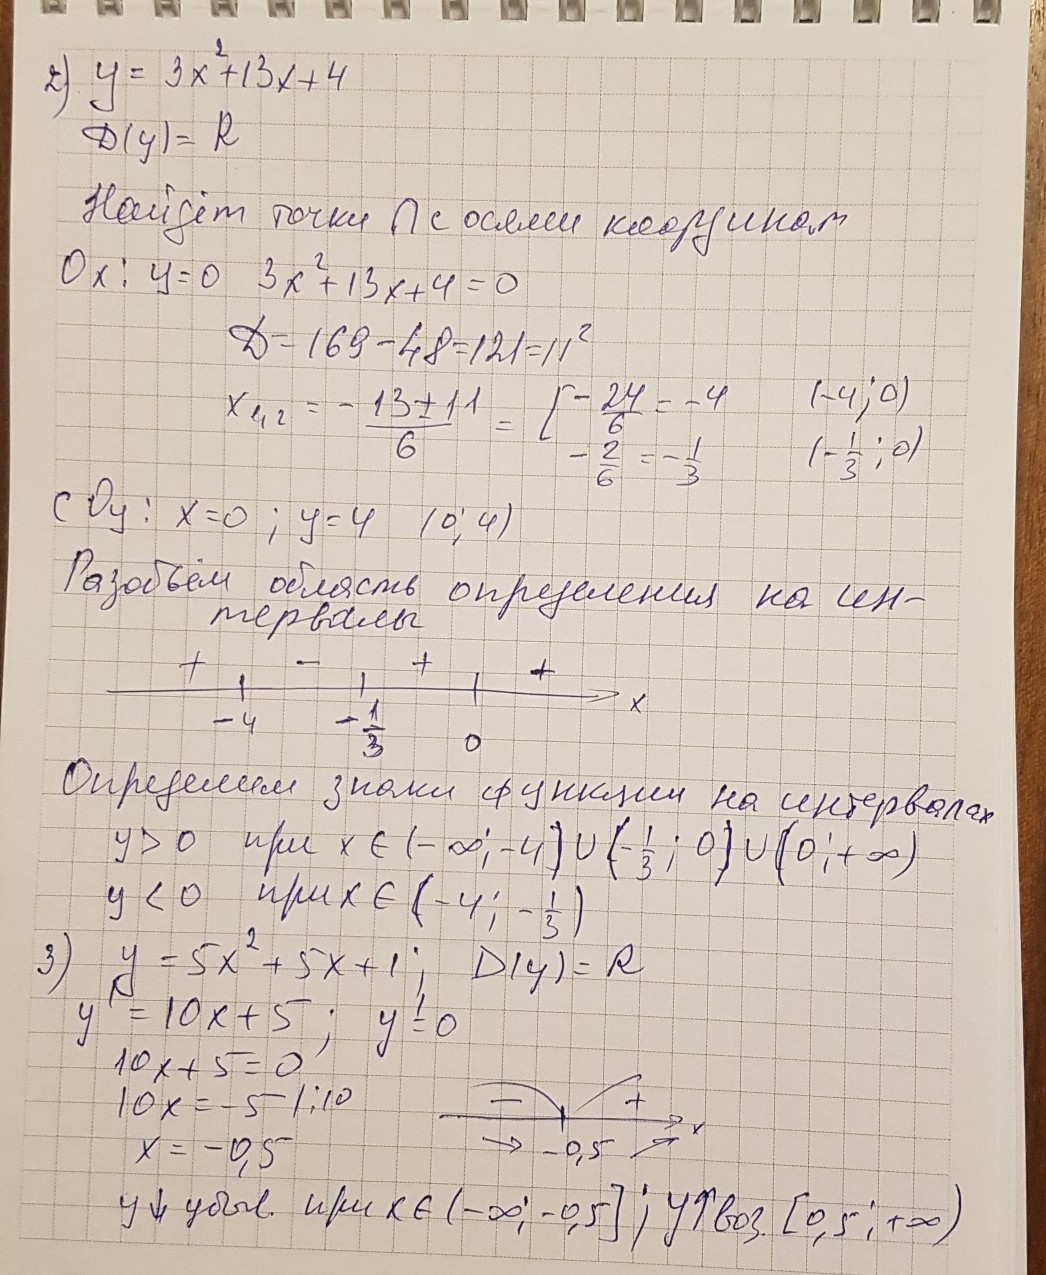 2) y = 3x²+13x+4
D(y)= R
Найдём точки ∩ с осями координат
Ox: y=0 3x²+13x+4=0
D=169-48=121=11²
x₁,₂ = -13±11/6 = [-24/6 = -4 (-4;0)
-2/6 = -1/3 (-1/3;0)
с Oy: x=0; y=4 (0;4)
Разобьём область определения на ин-
тервалы
+ - + +
-4 -1/3 0 x
Определим знаки функции на интервалах
y>0 при x∈(-∞;-4)∪(-1/3;0)∪(0;+∞)
y<0 при x∈(-4;-1/3)
3) y=5x²+5x+1; D(y)=R
y'=10x+5; y'=0
10x+5=0
10x=-5 |:10
x=-0,5
- +
→ -0,5 ↗ x
y↓ убыв. при x∈(-∞;-0,5]; y↑воз. [0,5;+∞)